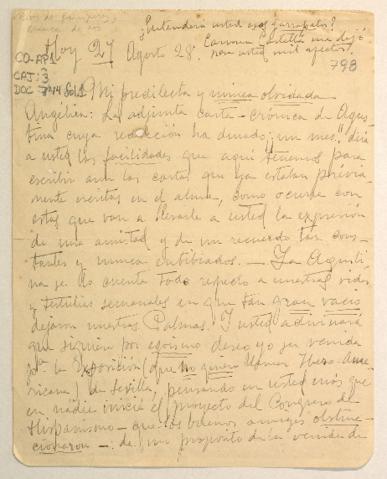 ¿Entenderá usted esos garrapatos?
Carmen Estella me dejó
para usted mil afectos.
Hoy 27 Agosto 28.
798
CO-AP1
CAJ: 3
DOC 744 fol. 1
Mi predilecta y nunca olvidada
Angélica: La adjunta carta-crónica de Agus-
tina cuya redacción ha durado ¡un mes! dirá
a usted las facilidades que aquí tenemos para
escribir aun las cartas que ya estaban previa-
mente escritas en el alma, como ocurre con
estas que van a llevarle a usted la expresión
de una amistad y de un recuerdo tan cons-
tantes y nunca entibiados. — Ya Agusti-
na se lo cuenta todo respecto a nuestra vida
y tertulias semanales en que tan gran vacío
dejaron nuestras Palmas. Y usted adivinará
que siguen por egoísmo deseo yo su venida
pª la Exposición (que no quiero llamar Ibero-Ame-
ricana) de Sevilla, pensando en usted más que
en nadie inicié el proyecto del Congreso del
Hispanismo — que los buenos amigos obstruc-
cionaron — de un propósito de la venida de